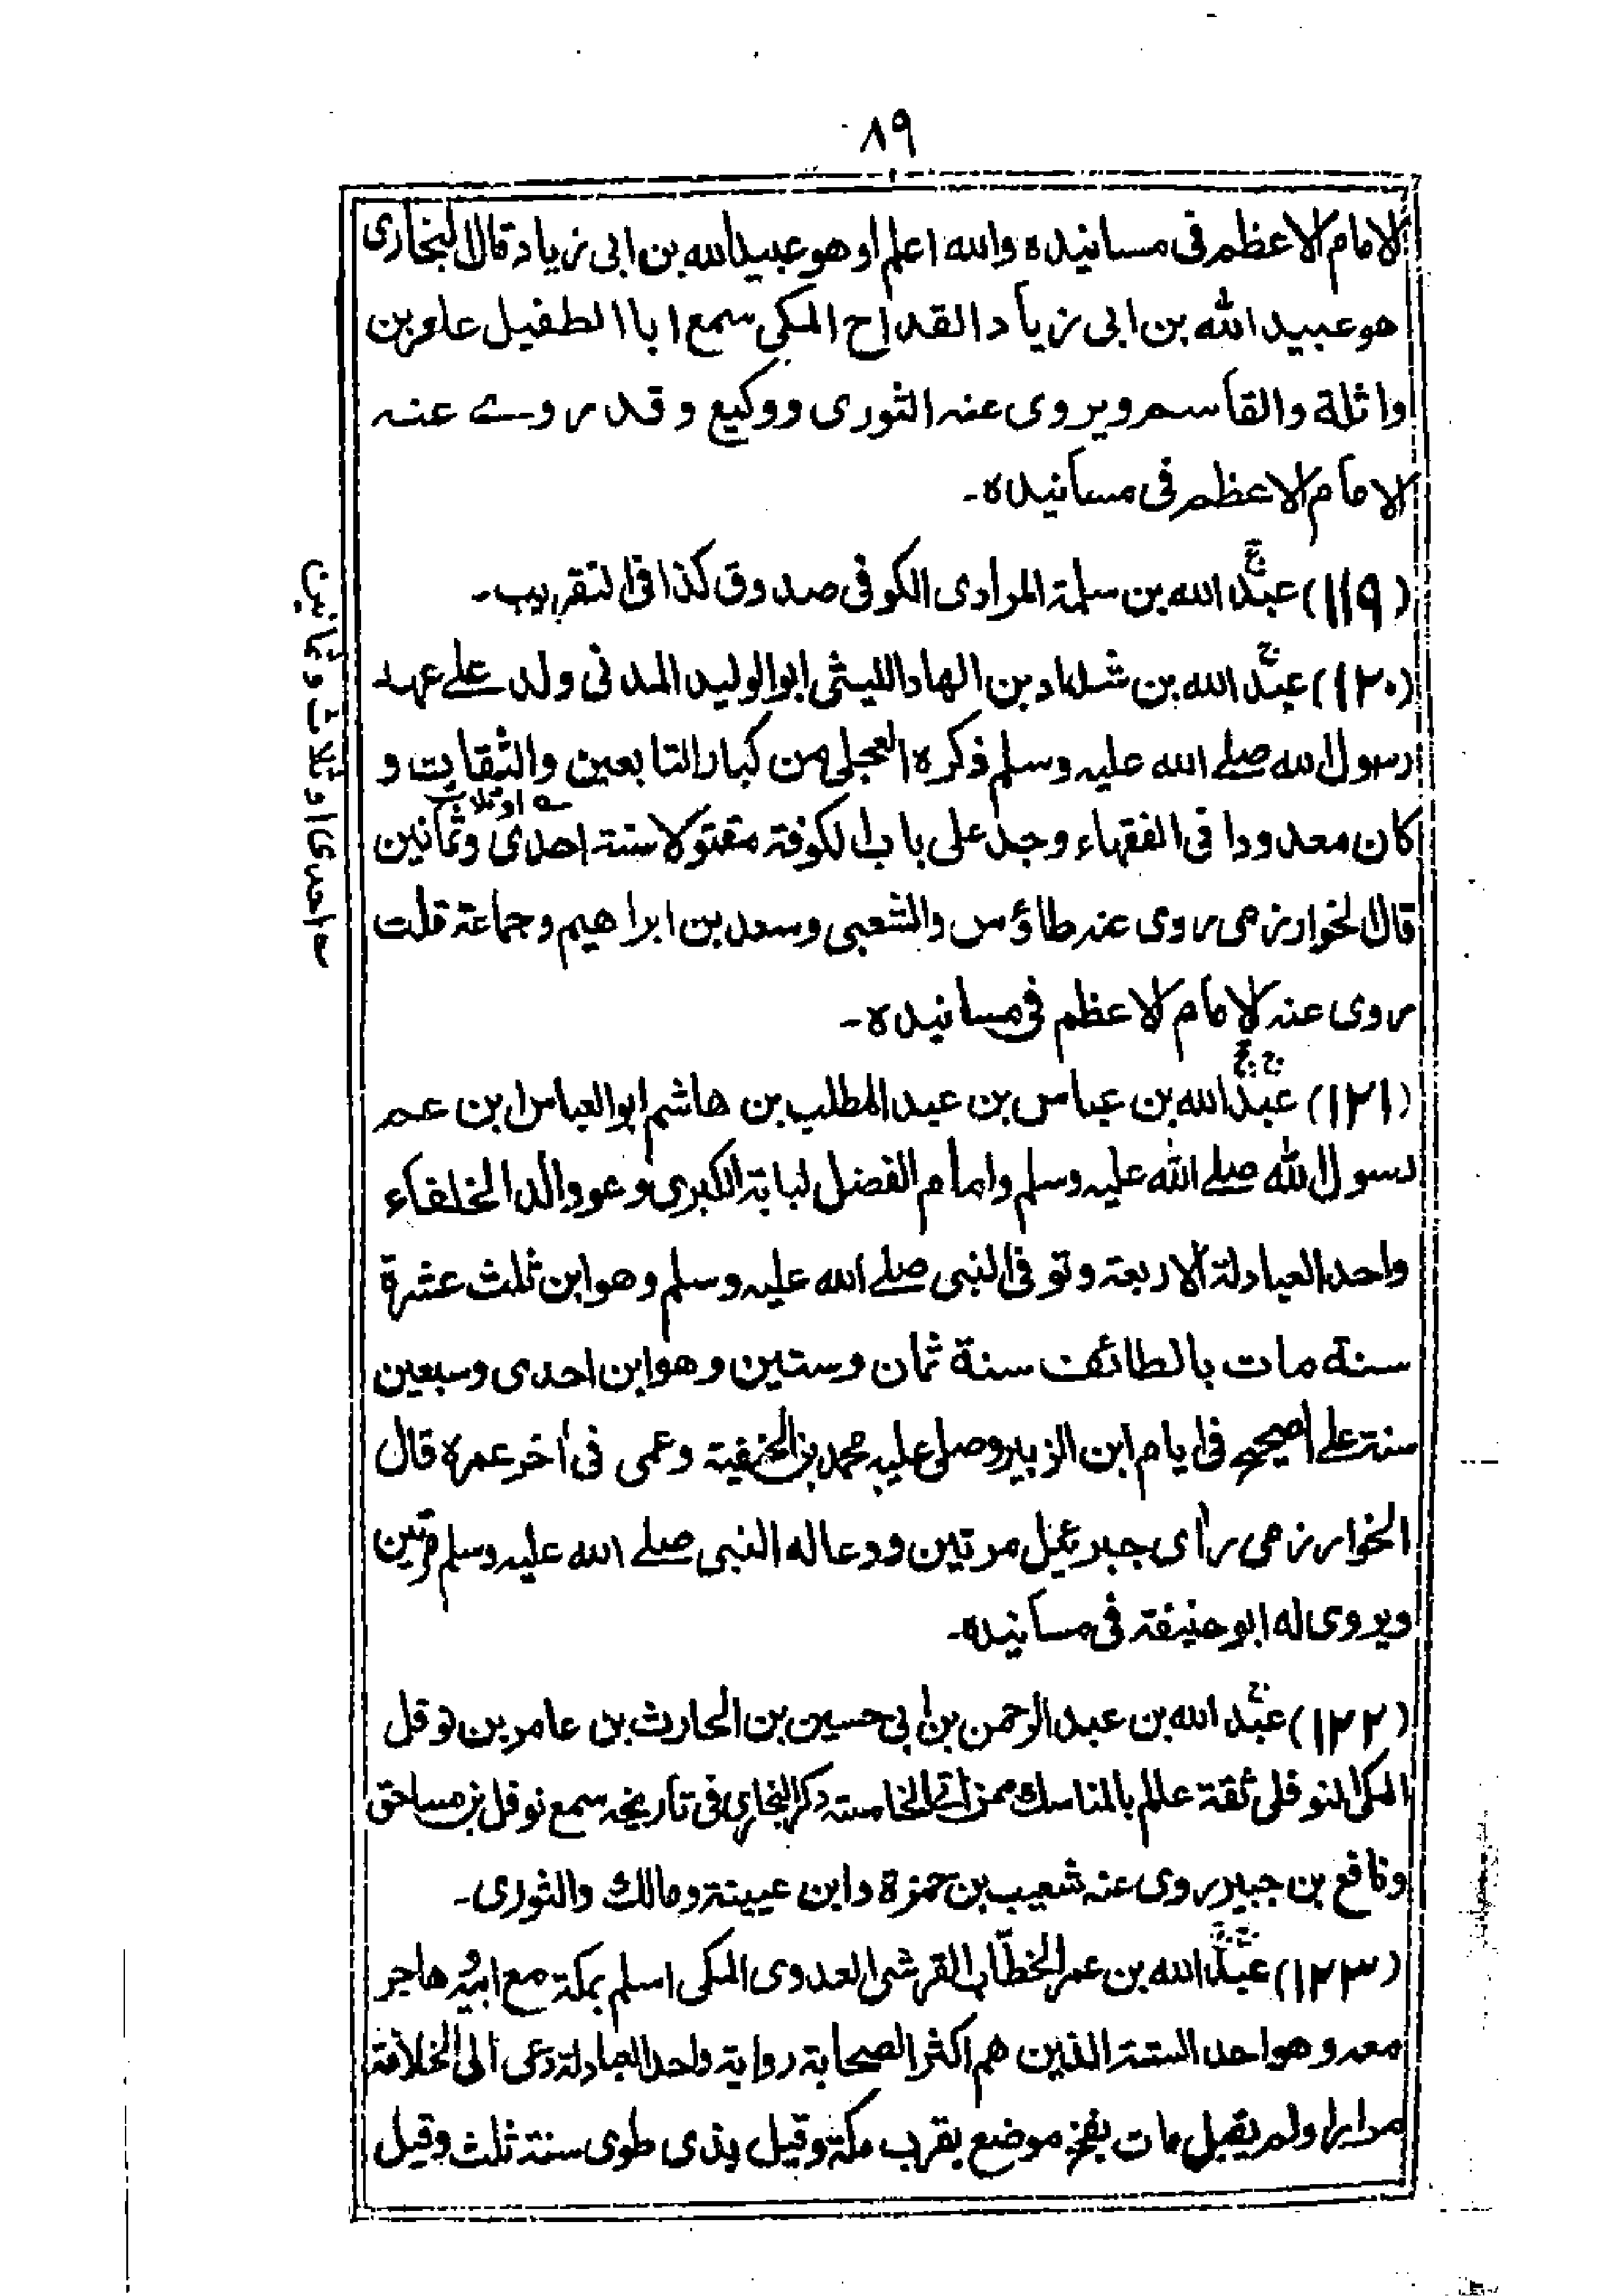 ٨٩
الامام الاعظم فی مسانیده والله اعلم او هو عبید الله بن ابی زیاد قال البخاری
هو عبید الله بن ابی زیاد القداح المکی سمع ابا الطفیل عامر بن
واثلة والقاسم ویروی عنه الثوری ووکیع وقد روے عنه
الامام الاعظم فی مسانیده۔
(١١٩) عبد الله بن سلمة المرادی الکوفی صدوق کذا فی التقریب۔
(١٢٠) عبد الله بن شداد بن الهاد اللیثی ابو الولید المدنی ولد علے عهد
رسول الله صلے الله علیه وسلم ذکره العجلی من کبار التابعین والثقات و
کان معدودا فی الفقهاء وجد علی باب الکوفة مقتولا سنة احدی وثمانین
قال الخوارزمی روی عنه طاؤس والشعبی وسعد بن ابراهیم وجماعة قلت
روی عنه الامام الاعظم فی مسانیده۔
(١٢١) عبد الله بن عباس بن عبد المطلب بن هاشم ابو العباس ابن عم
رسول الله صلے الله علیه وسلم وامه ام الفضل لبابة الکبری وهو والد الخلفاء
واحد العبادلة الاربعة وتوفی النبی صلے الله علیه وسلم وهو ابن ثلث عشرة
سنة مات بالطائف سنة ثمان وستین وهو ابن احدی وسبعین
سنة علے الصحیح فی ایام ابن الزبیر وصلی علیه محمد بن الحنفیة وعمی فی أخر عمره قال
الخوارزمی رأی جبرئیل مرتین ودعا له النبی صلے الله علیه وسلم مرتین
ویروی له ابو حنیفة فی مسانیده۔
(١٢٢) عبد الله بن عبد الرحمن بن أبی حسین بن الحارث بن عامر بن نوفل
المکی النوفلی ثقة عالم بالمناسك من الخامسة ذکر البخاری فی تاریخه سمع نوفل بن مساحق
ونافع بن جبیر روی عنه شعیب بن حمزة وابن عیینة ومالك والثوری۔
(١٢٣) عبد الله بن عمر الخطّاب القرشی العدوی المکی اسلم بمکة مع ابیه هاجر
معه وهو احد الستة الذین هم اکثر الصحابة روایة واحد العبادلة دعی الی الخلافة
مرارا ولم یقبل مات بفخ موضع بقرب مکة وقیل بذی طوی سنة ثلث وقیل
ــه احدی او ثلاث وثمانین